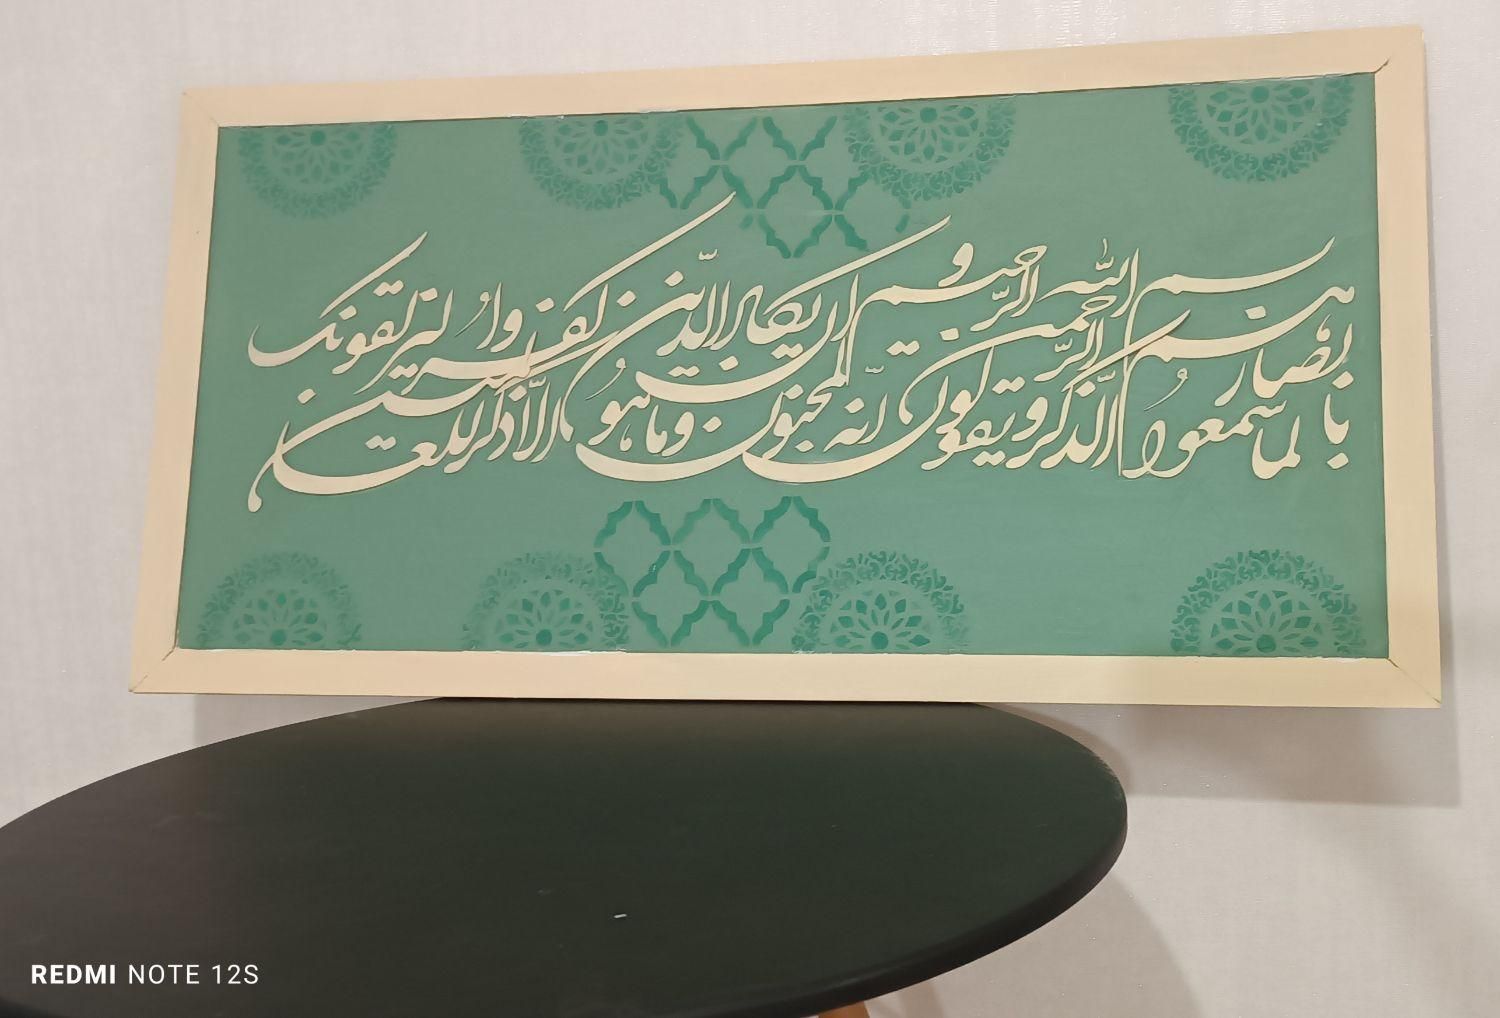 بسم الله الرحمن الرحیم و ان یکاد الذین کفروا لیزلقونک
بابصارهم لما سمعوا الذکر و یقولون انه لمجنون و ما هو الا ذکر للعالمین
REDMI NOTE 12S